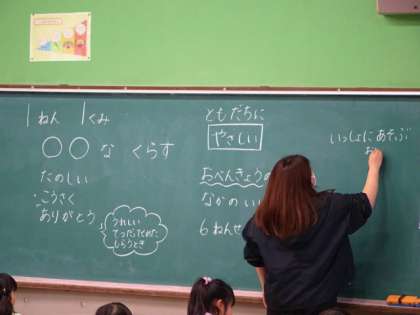 1ねん 1くみ
○○な くらす
たのしい
・こうさく
ありがとう
うれしい
てつだってくれた
もらうとき
ともだちに
やさしい
おべんきょうの
なかのいい
6ねんせ
いっしょにあそぶ